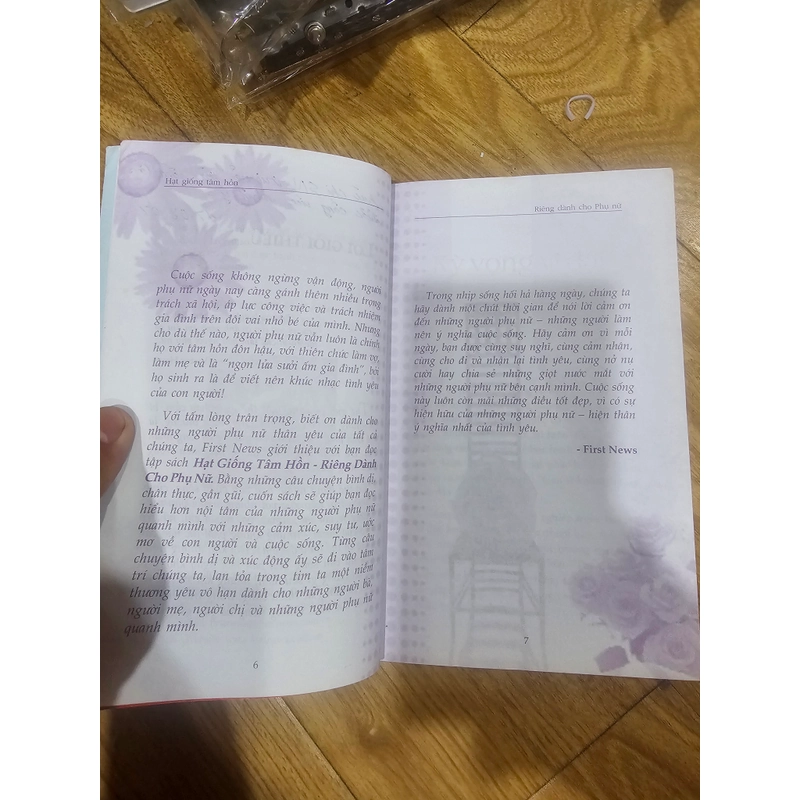 Hạt giống tâm hồn
Cuộc sống không ngừng vận động, người
phụ nữ ngày nay càng gánh thêm nhiều trọng
trách xã hội, áp lực công việc và trách nhiệm
gia đình trên đôi vai nhỏ bé của mình. Nhưng
cho dù thế nào, người phụ nữ vẫn luôn là chính
họ với tâm hồn đôn hậu, với thiên chức làm vợ,
làm mẹ và là “ngọn lửa sưởi ấm gia đình”, bởi
họ sinh ra là để viết nên khúc nhạc tình yêu
của con người!
Với tấm lòng trân trọng, biết ơn dành cho
những người phụ nữ thân yêu của tất cả
chúng ta, First News giới thiệu với bạn đọc
tập sách Hạt Giống Tâm Hồn - Riêng Dành
Cho Phụ Nữ. Bằng những câu chuyện bình dị,
chân thực, gần gũi, cuốn sách sẽ giúp bạn đọc
hiểu hơn nội tâm của những người phụ nữ
quanh mình với những cảm xúc, suy tư, ước
mơ về con người và cuộc sống. Từng câu
chuyện bình dị và xúc động ấy sẽ đi vào tâm
trí chúng ta, lan tỏa trong tim ta một niềm
thương yêu vô hạn dành cho những người bà,
người mẹ, người chị và những người phụ nữ
quanh mình.
6
Riêng dành cho Phụ nữ
Trong nhịp sống hối hả hàng ngày, chúng ta
hãy dành một chút thời gian để nói lời cảm ơn
đến những người phụ nữ – những người làm
nên ý nghĩa cuộc sống. Hãy cảm ơn vì mỗi
ngày, bạn được cùng suy nghĩ, cùng cảm nhận,
cùng cho đi và nhận lại tình yêu, cùng nở nụ
cười hay chia sẻ những giọt nước mắt với
những người phụ nữ bên cạnh mình. Cuộc sống
này luôn còn mãi những điều tốt đẹp, vì có sự
hiện hữu của những người phụ nữ – hiện thân
ý nghĩa nhất của tình yêu.
- First News
7